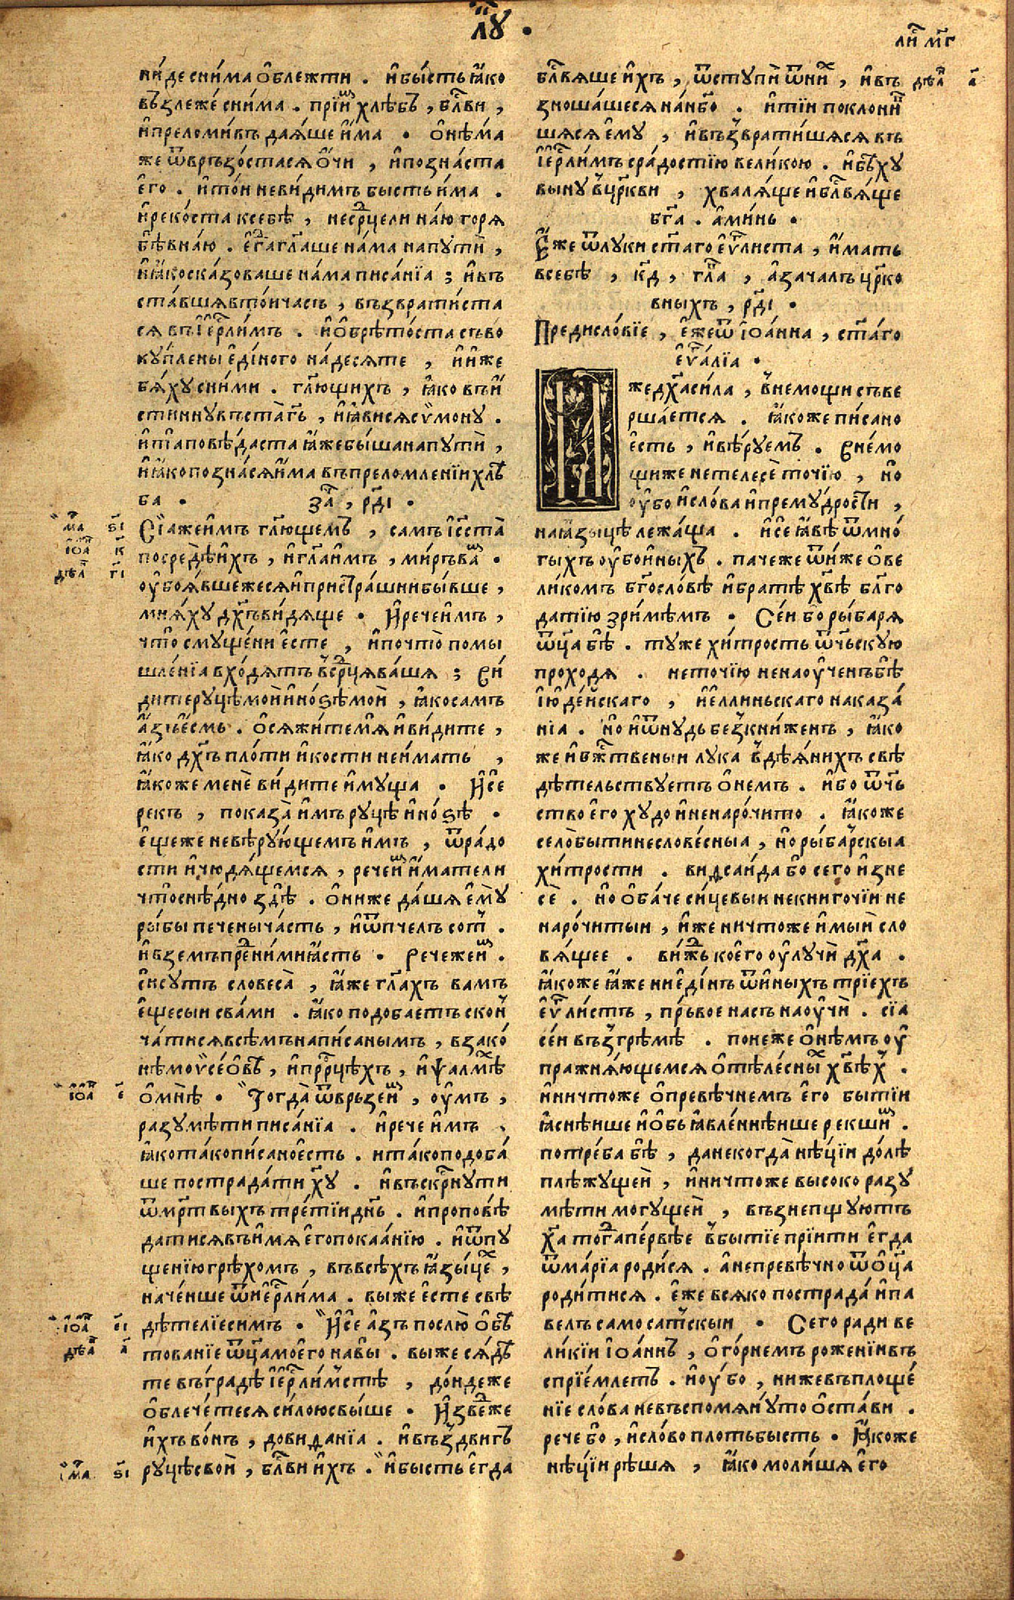 лꙋ .
ниде снима облежти . и бысть ꙗко
възлеже снима . приимъ хлѣбъ , блгви ,
и преломивъ даꙗше има . онѣма
же ѿврьзостася очи , и познаста
его . и тои невидимъ бысть има .
и рекоста к себѣ , не срце ли наю горя
бѣ в наю . егда глаше нама на пути ,
и ꙗко сказоваше нама писанїа ; и въ
ставша в тои часъ , възвратиста
ся въ іерлимъ . и обрѣтоста съво
куплены единого надесяте , и иже
бяху с ними . глющихъ , ꙗко въи
стинну въста гь , и ꙗвися сѵмону .
и та повѣдаста ꙗже быша на пути ,
и ꙗко познася има въ преломленїи хлѣ
ба . за , рді .
Сїа же имъ глющемъ , самъ іс ста
посредѣ ихъ , и гла имъ , миръ вамъ .
оубоꙗвше же ся и пристрашни бывше ,
мняху дхъ видяще . И рече имъ ,
что смущени есте , и почто помы
шленїа входятъ в срца ваша ; Ви
дите руцѣ мои и нозѣ мои , ꙗко самъ
азъ есмь . осяжите мя и видите ,
ꙗко дхъ плоти и кости не имать ,
ꙗкоже мене видите имуща . И се
рекъ , показа имъ руцѣ и нозѣ .
еще же невѣрующемъ имъ , ѿ радо
сти и чюдящемся , рече имъ имате ли
что снѣдно здѣ . они же даша ему
рыбы печены часть , и ѿ пчелъ сотъ .
и вземъ пред ними ꙗсть . Рече же имъ .
си суть словеса , ꙗже глахъ вамъ
еще сыи с вами . ꙗко подобаетъ скон
чатися всѣмъ написанымъ , в зако
нѣ моѵсеовѣ , и пррцѣхъ , и ѱалмѣ
о мнѣ . Тогда ѿврьзе имъ , оумъ ,
разумѣти писанїа . и рече имъ ,
ꙗко тако писано есть . и тако подоба
ше пострадати хꙋ . и въскрнути
ѿ мртвыхъ третїи днь . и проповѣ
датися въ имя его покаанїю . и ѿпу
щенїю грѣхомъ , въ всѣхъ ꙗзыцѣ ,
наченше ѿ иерлима . вы же есте свѣ
дѣтелїе симъ . И се азъ послю обѣ
тованїе ѿца моего на вы . вы же сядѣ
те въ градѣ іерлимстѣ , дондеже
облечетеся силою свыше . Изведже
ихъ вонъ , до виѳанїа . и въздвигъ
руцѣ свои , блгви ихъ . И бысть егда
ма ѕі
іоа к
дѣа гі
іоа е
іоа еі
дѣа а
ма ѕі
ли мг
блгвяше ихъ , ѿступи ѿ ни , и въ
зношашеся на нбо . и тїи поклони
шася ему , и възвратишася въ
іерлимъ с радостїю великою . и бѣху
выну в цркви , хваляще и блгвяще
бга . аминь .
Еже ѿ луки стаго еѵглиста , имать
в себѣ , кд , гла , а зачалъ црко
вныхъ , рді .
Предисловїе , еже ѿ іоанна , стаго
еѵгалїа .
же дха сила , в немощи съве
ршается . ꙗкоже писано
есть , и вѣруемъ . в немо
щи же не телесе точїю , но
оубо и слова и премудрости ,
на ꙗзыцѣ лежаща . и се ꙗвѣ ѿ мно
гыхъ оубо иныхъ . паче же ѿ иже о ве
ликомъ бгословѣ и братѣ хвѣ благо
датїю зримъмъ . Сеи бо рыбаря
ѿца бѣ . ту же хитрость ѿчьскую
проходя . не точїю не наоученъ бѣ
іюдейскаго , и еллиньскаго наказа
нїа . но и ѿнудь безкниженъ , ꙗко
же и бжтвеныи лука в дѣянихъ свѣ
дѣтельствуетъ о немъ . ибо ѿчь
ство его худо и ненарочито . ꙗкоже
село быти несловесныа , но рыбарскыа
хитрости . виѳсаида бо сего изне
се . но обаче сицевыи некнигочїи не
нарочитыи , иже ничтоже имыи сло
вящее . вижь коего оулучи дха .
ꙗкоже ꙗже ни единъ ѿ иныхъ трїехъ
еѵглистъ , прьвое насъ наоучи . сїа
сеи възгремѣ . понеже онѣмъ оу
пражняющемся о тѣлесны хвѣх .
и ничтоже о превѣчнемъ его бытїи
ꙗснѣише и объꙗвленнѣише рекшимъ .
потреба бѣ , да некогда нѣцїи долѣ
плѣжущеи , и ничтоже высоко разу
мѣти могущеи , възнепщуютъ
ха тогда первѣе в бытїе прїити егда
ѿ марїа родися . а не превѣчно ѿ оца
родитися . еже всяко пострада и па
велъ самосатскыи . Сего ради ве
ликїи іоаннъ , о горнемъ роженїи въ
спрїемлетъ . и оубо , ниже въплоще
нїе слова невъспомянуто остави .
рече бо , и слово плоть бысть . Ꙗкоже
нѣцїи рѣша , ꙗко молиша его
дѣа а